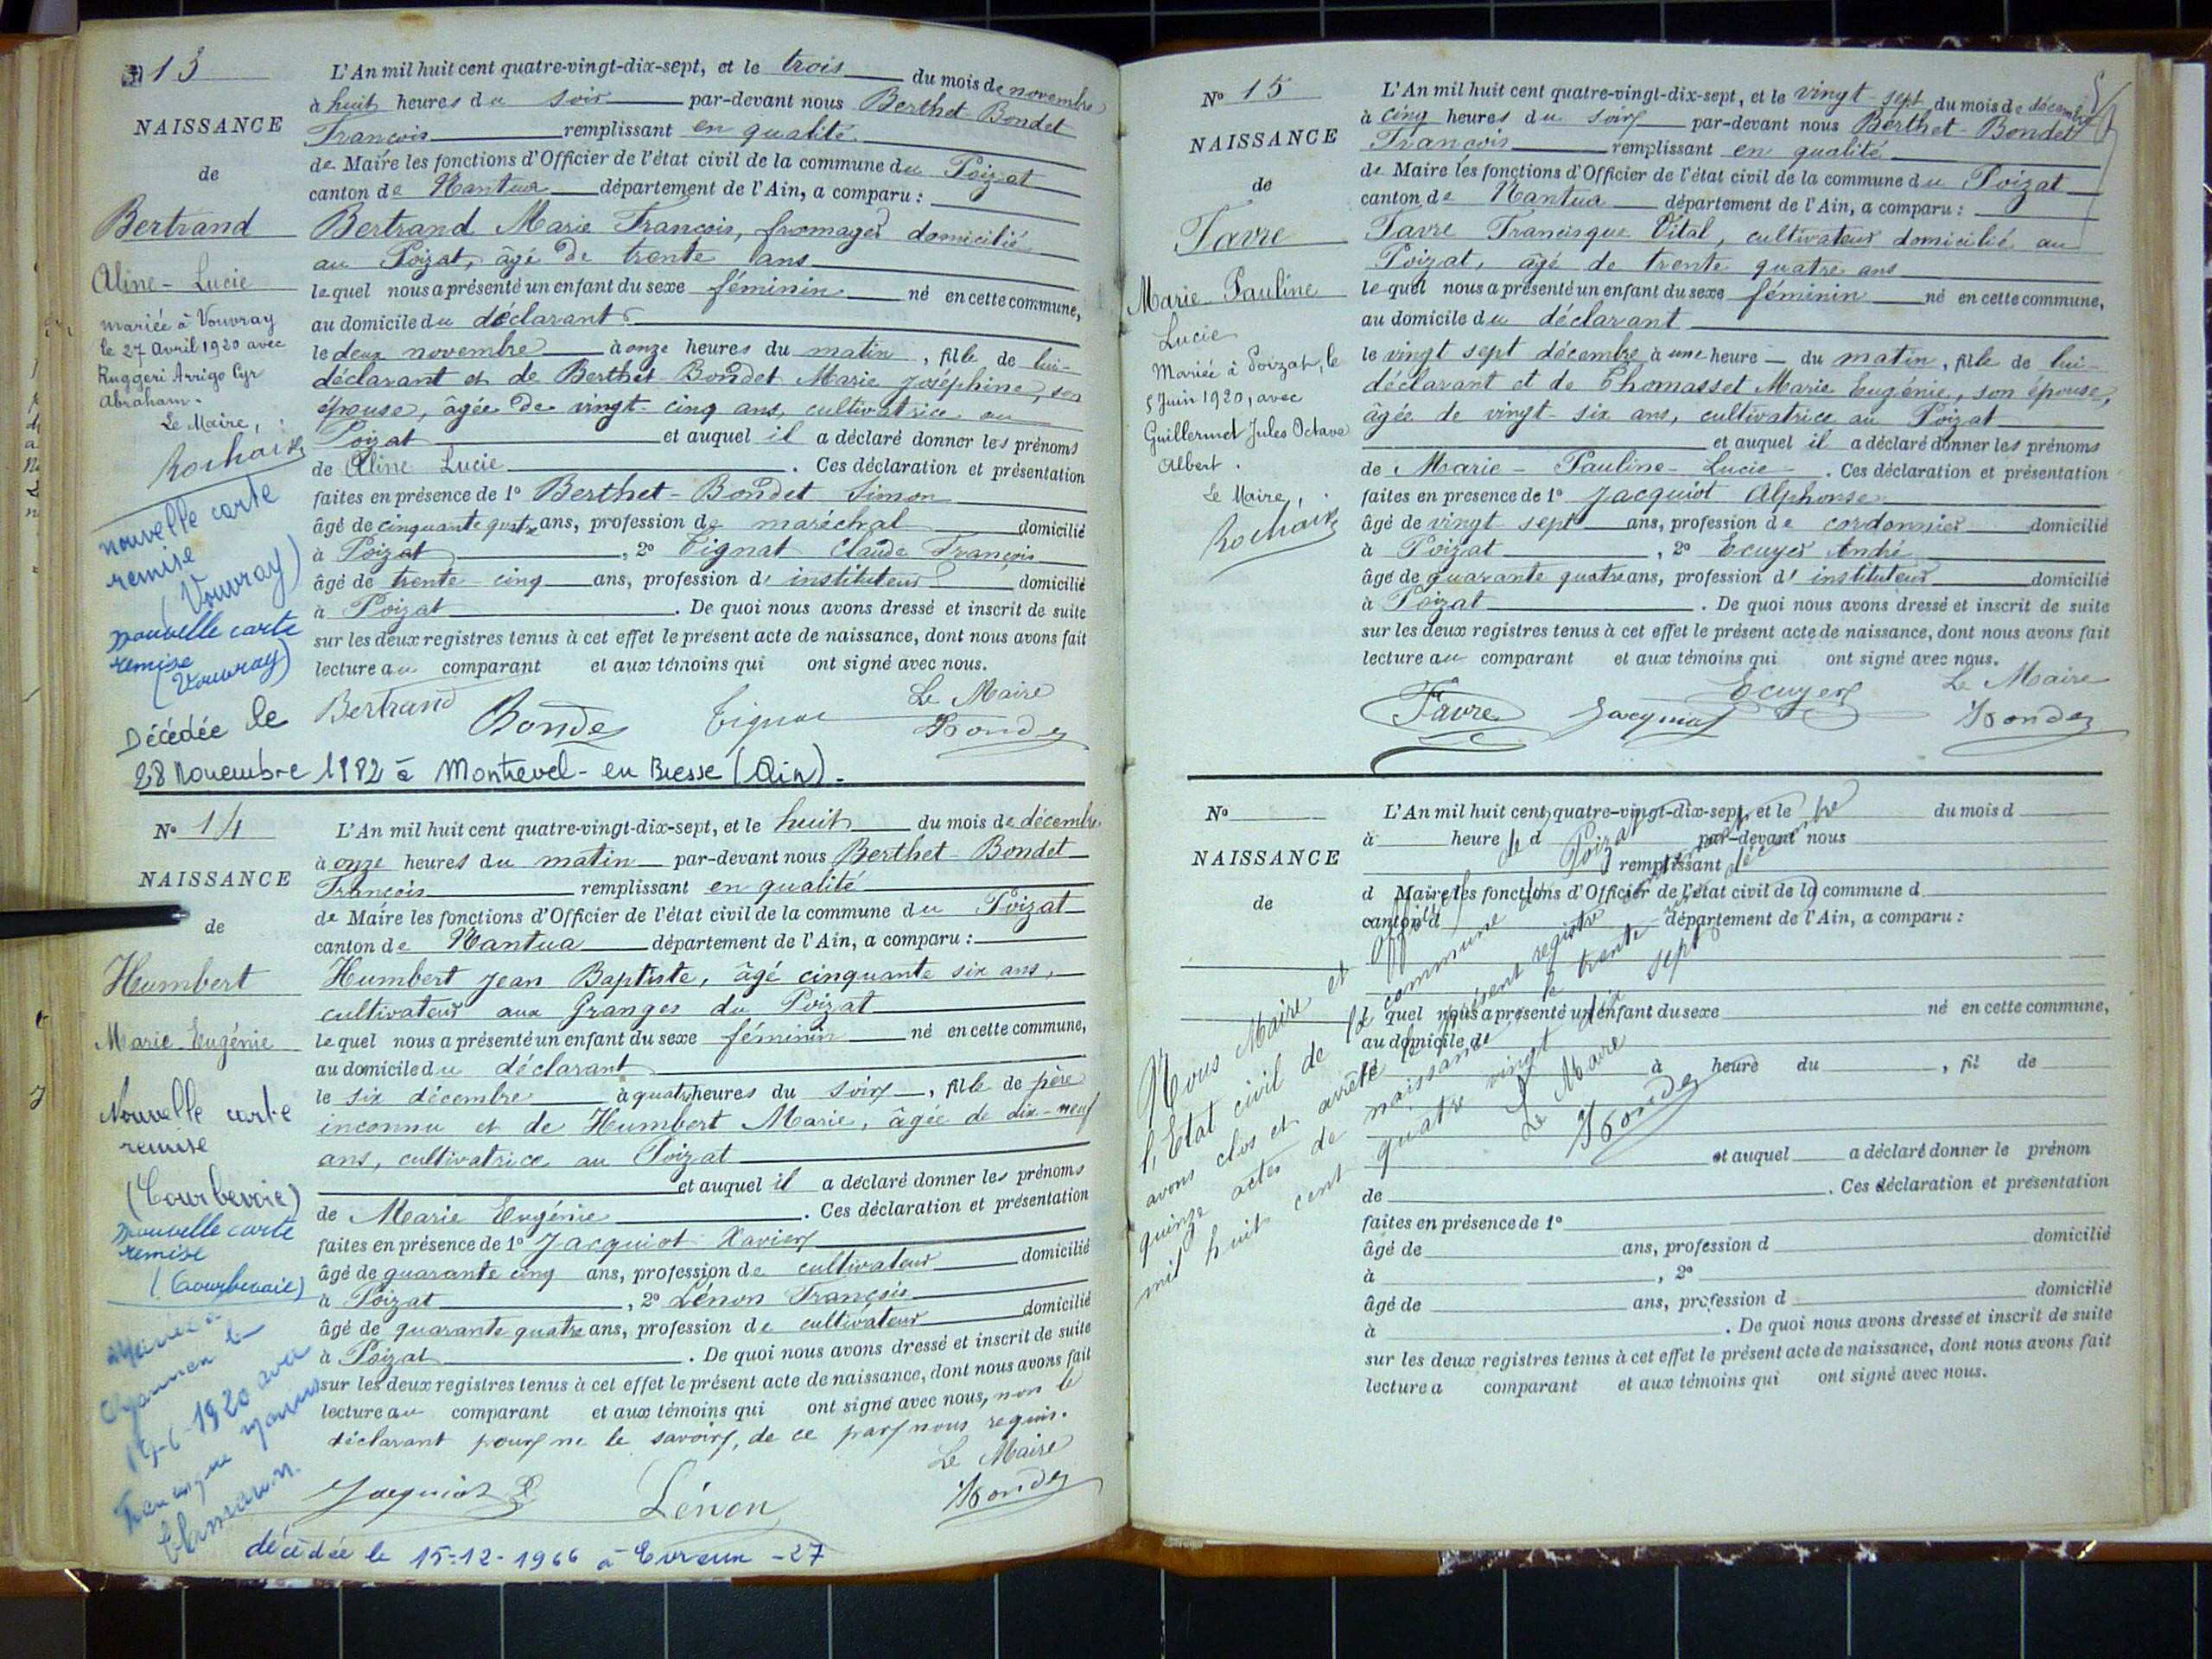 13
NAISSANCE
de
Bertrand
Aline - Lucie
mariée à Vouvray
le 27 Avril 1920 avec
Ruggeri Arrigo Cyr
Abraham.
Le Maire,
Rochaix
nouvelle carte
remise
(Vouvray)
nouvelle carte
remise
(Vouvray)
L'An mil huit cent quatre-vingt-dix-sept, et le trois du mois de novembre
à huit heures du soir par-devant nous Berthet-Bondet
François remplissant en qualité
de Maire les fonctions d'Officier de l'état civil de la commune du Poizat
canton de Nantua département de l'Ain, a comparu :
Bertrand Marie François, fromager domicilié
au Poizat, âgé de trente ans
lequel nous a présenté un enfant du sexe féminin né en cette commune,
au domicile du déclarant
le deux novembre à onze heures du matin, fille de lui-
déclarant et de Berthet-Bondet Marie Joséphine, son
épouse, âgée de vingt-cinq ans, cultivatrice au
Poizat et auquel il a déclaré donner les prénoms
de Aline Lucie. Ces déclaration et présentation
faites en présence de 1° Berthet-Bondet Simon
âgé de cinquante quatre ans, profession de maréchal domicilié
à Poizat, 2° Tignat Claude François
âgé de trente-cinq ans, profession d' instituteur domicilié
à Poizat. De quoi nous avons dressé et inscrit de suite
sur les deux registres tenus à cet effet le présent acte de naissance, dont nous avons fait
lecture au comparant et aux témoins qui ont signé avec nous.
Le Maire
Bertrand Bondet Tignat Bondet
Décédée le
28 Novembre 1982 à Montrevel-en Bresse (Ain).
N° 14
NAISSANCE
de
Humbert
Marie Eugénie
Nouvelle carte
remise
(Courbevoie)
nouvelle carte
remise
(Courbevoie)
Mariée à
Oyonnax le
1920 avec
L'An mil huit cent quatre-vingt-dix-sept, et le huit du mois de décembre
à onze heures du matin par-devant nous Berthet-Bondet
François remplissant en qualité
de Maire les fonctions d'Officier de l'état civil de la commune du Poizat
canton de Nantua département de l'Ain, a comparu :
Humbert Jean Baptiste, âgé cinquante six ans,
cultivateur aux Granges du Poizat
lequel nous a présenté un enfant du sexe féminin né en cette commune,
au domicile du déclarant
le six décembre à quatre heures du soir, fille de père
inconnu et de Humbert Marie, âgée de dix-neuf
ans, cultivatrice au Poizat
et auquel il a déclaré donner les prénoms
de Marie Eugénie. Ces déclaration et présentation
faites en présence de 1° Jacquiot Xavier
âgé de quarante cinq ans, profession de cultivateur domicilié
à Poizat, 2° Lénon François
âgé de quarante quatre ans, profession de cultivateur domicilié
à Poizat. De quoi nous avons dressé et inscrit de suite
sur les deux registres tenus à cet effet le présent acte de naissance, dont nous avons fait
lecture au comparant et aux témoins qui ont signé avec nous, non le
déclarant pour ne le savoir, de ce par nous requis.
Le Maire
Jacquiot Lénon Bondet
décédée le 15-12-1966 à Evreux -27
N° 15
NAISSANCE
de
Favre
Marie Pauline
Lucie
Mariée à Poizat, le
5 Juin 1920, avec
Guillermet Jules Octave
Albert.
Le Maire,
Rochaix
L'An mil huit cent quatre-vingt-dix-sept, et le vingt-sept du mois de décembre
à cinq heures du soir par-devant nous Berthet-Bondet
François remplissant en qualité
de Maire les fonctions d'Officier de l'état civil de la commune du Poizat
canton de Nantua département de l'Ain, a comparu :
Favre Francisque Vital, cultivateur domicilié au
Poizat, âgé de trente quatre ans
lequel nous a présenté un enfant du sexe féminin né en cette commune,
au domicile du déclarant
le vingt sept décembre à une heure du matin, fille de lui-
déclarant et de Thomasset Marie Eugénie, son épouse,
âgée de vingt-six ans, cultivatrice au Poizat
et auquel il a déclaré donner les prénoms
de Marie-Pauline-Lucie. Ces déclaration et présentation
faites en présence de 1° Jacquiot Alphonse
âgé de vingt-sept ans, profession de cordonnier domicilié
à Poizat, 2° Ecuyer André
âgé de quarante quatre ans, profession d' instituteur domicilié
à Poizat. De quoi nous avons dressé et inscrit de suite
sur les deux registres tenus à cet effet le présent acte de naissance, dont nous avons fait
lecture au comparant et aux témoins qui ont signé avec nous.
Le Maire
Favre Jacquiot Ecuyer Bondet
N°
NAISSANCE
de
L'An mil huit cent quatre-vingt-dix-sept, et le du mois d
à heure d par-devant nous
remplissant
d Maire les fonctions d'Officier de l'état civil de la commune d
canton d département de l'Ain, a comparu :
l quel nous a présenté un enfant du sexe né en cette commune,
au domicile d
le à heure du, fil de
et auquel a déclaré donner le prénom
de. Ces déclaration et présentation
faites en présence de 1°
âgé de ans, profession d domicilié
à, 2°
âgé de ans, profession d domicilié
à. De quoi nous avons dressé et inscrit de suite
sur les deux registres tenus à cet effet le présent acte de naissance, dont nous avons fait
lecture a comparant et aux témoins qui ont signé avec nous.
Nous Maire et Officier de
l'Etat civil de la commune du Poizat
avons clos et arrêté le présent registre
quinze actes de naissance le trente décembre
mil huit cent quatre vingt dix sept
Le Maire
Bondet